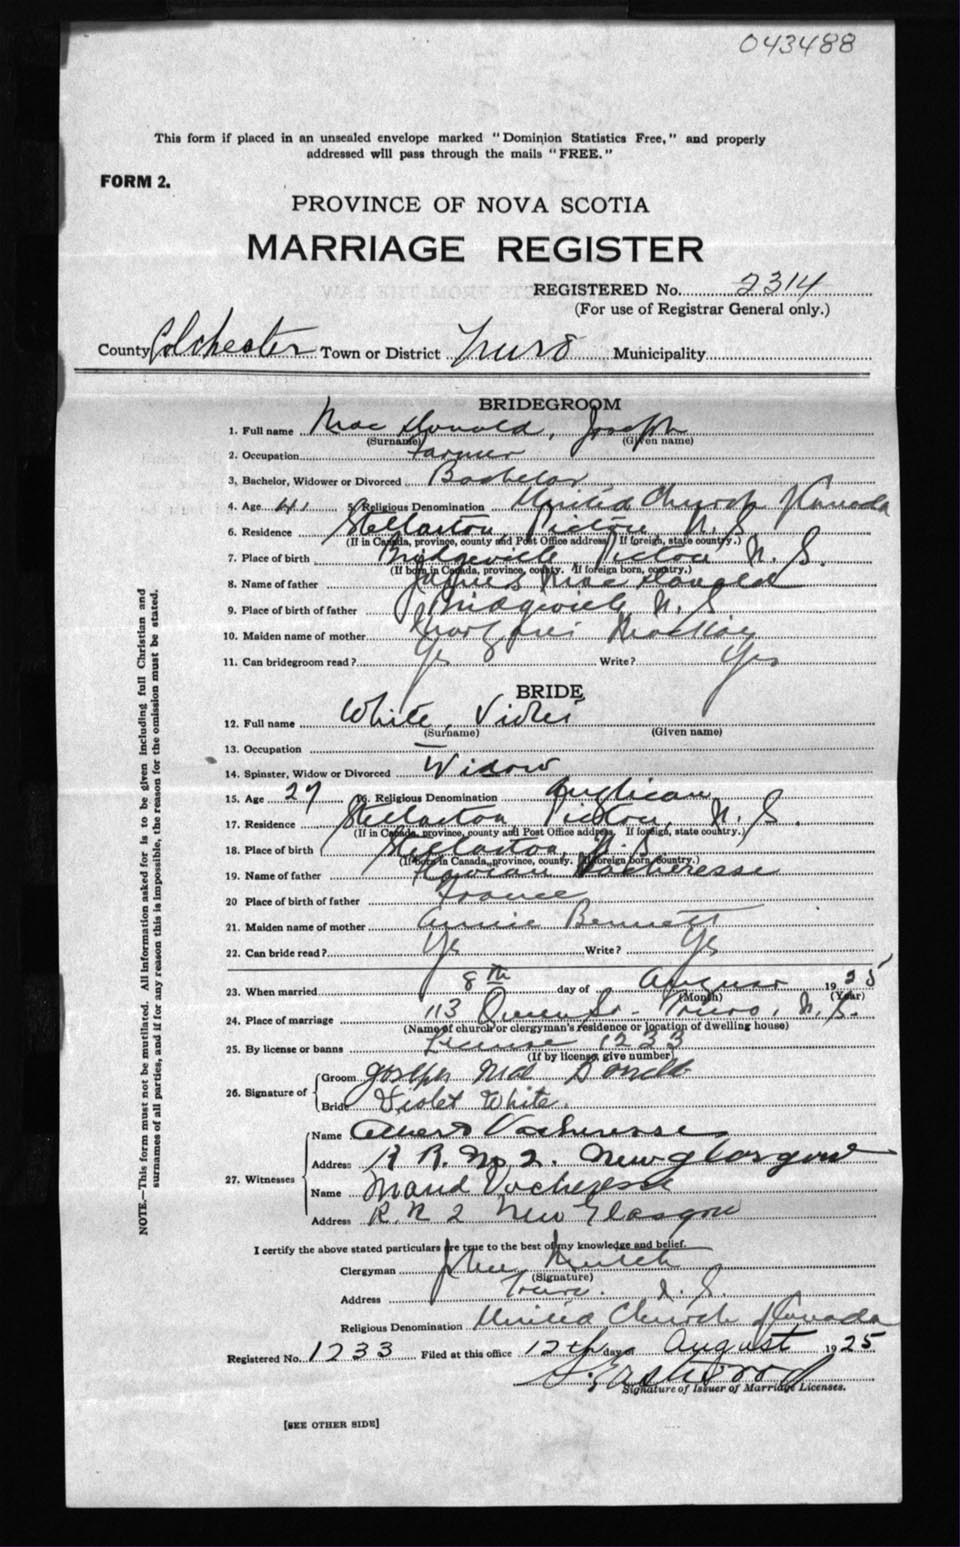 043488
This form if placed in an unsealed envelope marked "Dominion Statistics Free," and properly
addressed will pass through the mails "FREE."
FORM 2.
PROVINCE OF NOVA SCOTIA
MARRIAGE REGISTER
REGISTERED No. 2314
(For use of Registrar General only.)
County Colchester Town or District Truro Municipality
BRIDEGROOM
1. Full name Mac Donald, Joseph
(Surname) (Given name)
2. Occupation Farmer
3. Bachelor, Widower or Divorced Bachelor
4. Age 41 5. Religious Denomination United Church of Canada
6. Residence Stellarton Pictou N. S.
(If in Canada, province, county and Post Office address. If foreign, state country.)
7. Place of birth Bridgeville Pictou N. S.
(If born in Canada, province, county. If foreign born, country.)
8. Name of father James Mac Donald
9. Place of birth of father Bridgeville N. S.
10. Maiden name of mother MacKay
11. Can bridegroom read? Yes Write? Yes
BRIDE
12. Full name White, Violet
(Surname) (Given name)
13. Occupation —
14. Spinster, Widow or Divorced Widow
15. Age 27 16. Religious Denomination Anglican
17. Residence Stellarton Pictou, N. S.
(If in Canada, province, county and Post Office address. If foreign, state country.)
18. Place of birth Stellarton, N. S.
(If born in Canada, province, county. If foreign born, country.)
19. Name of father Vacheresse
20 Place of birth of father France
21. Maiden name of mother Annie Bennett
22. Can bride read? Yes Write? Yes
23. When married 8th day of August 1925
(Month) (Year)
24. Place of marriage 113 Queen St. Truro, N. S.
(Name of church or clergyman's residence or location of dwelling house)
25. By license or banns License 1233
(If by license, give number)
26. Signature of Groom Joseph Mac Donald
Bride Violet White.
27. Witnesses Name Albert Vacheresse
Address R R. No 2. New Glasgow
Name Maud Vacheresse
Address R. R 2 New Glasgow
I certify the above stated particulars are true to the best of my knowledge and belief.
Clergyman John
(Signature)
Address Truro. N. S.
Religious Denomination United Church of Canada
Registered No. 1233 Filed at this office 12th day of August 1925
Signature of Issuer of Marriage Licenses.
[SEE OTHER SIDE]
NOTE.—This form must not be mutilated. All information asked for is to be given including full Christian and
surnames of all parties, and if for any reason this is impossible, the reason for the omission must be stated.